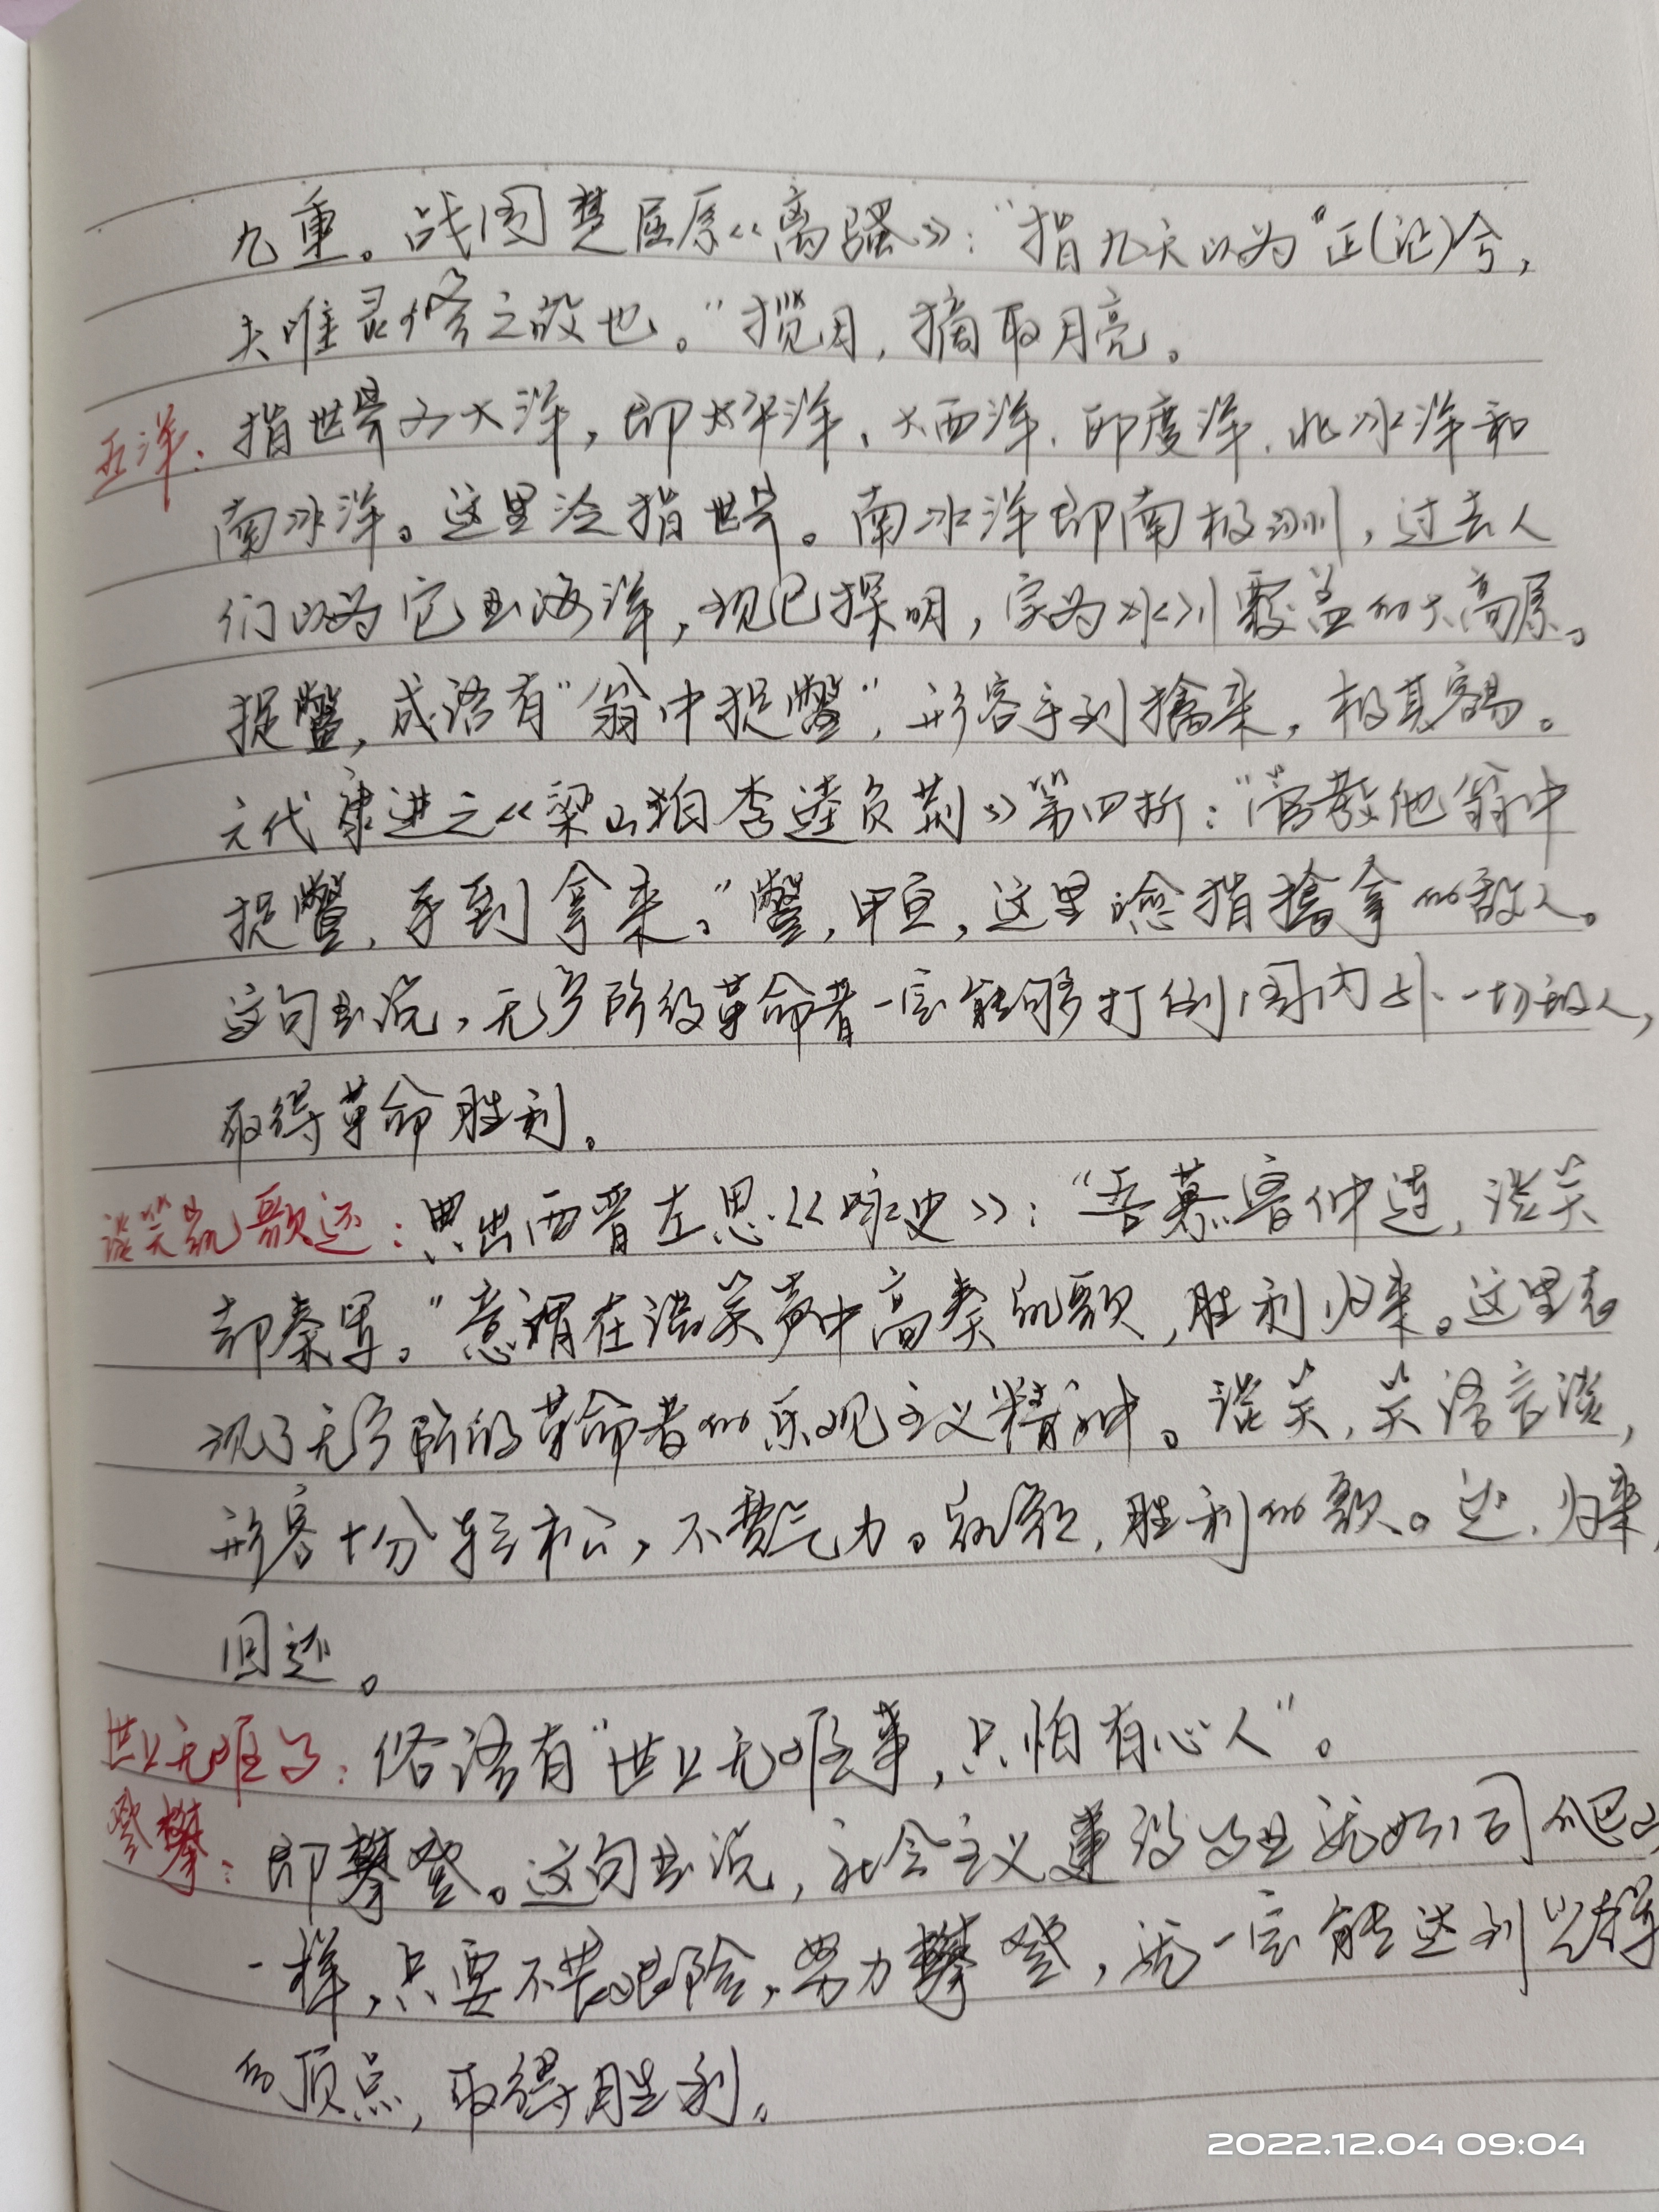 九重。战国楚屈原《离骚》：“指九天以为正(证)兮，
夫唯灵修之故也。”揽月，摘取月亮。
五洋：指世界五大洋，即太平洋、大西洋、印度洋、北冰洋和
南冰洋。这里泛指世界。南冰洋即南极洲，过去人
们以为它是海洋，现已探明，实为冰川覆盖的大高原。
捉鳖，成语有“翁中捉鳖”，形容手到擒来，极其容易。
元代康进之《梁山泊李逵负荆》第四折：“管教他翁中
捉鳖，手到拿来。”鳖，甲鱼，这里喻指擒拿的敌人。
这句是说，无产阶级革命者一定能够打倒国内外一切敌人，
取得革命胜利。
谈笑凯歌还：典出西晋左思《咏史》：“吾慕鲁仲连，谈笑
却秦军。”意谓在谈笑声中高奏凯歌，胜利归来。这里表
现了无产阶级革命者的乐观主义精神。谈笑，笑语言谈，
形容十分轻松，不费气力。凯歌，胜利的歌。还，归来，
回还。
世上无难事：俗语有“世上无难事，只怕有心人”。
登攀：即攀登。这句是说，社会主义建设事业就如同爬山
一样，只要不畏艰险，努力攀登，就一定能达到光辉
的顶点，取得胜利。
2022.12.04 09:04